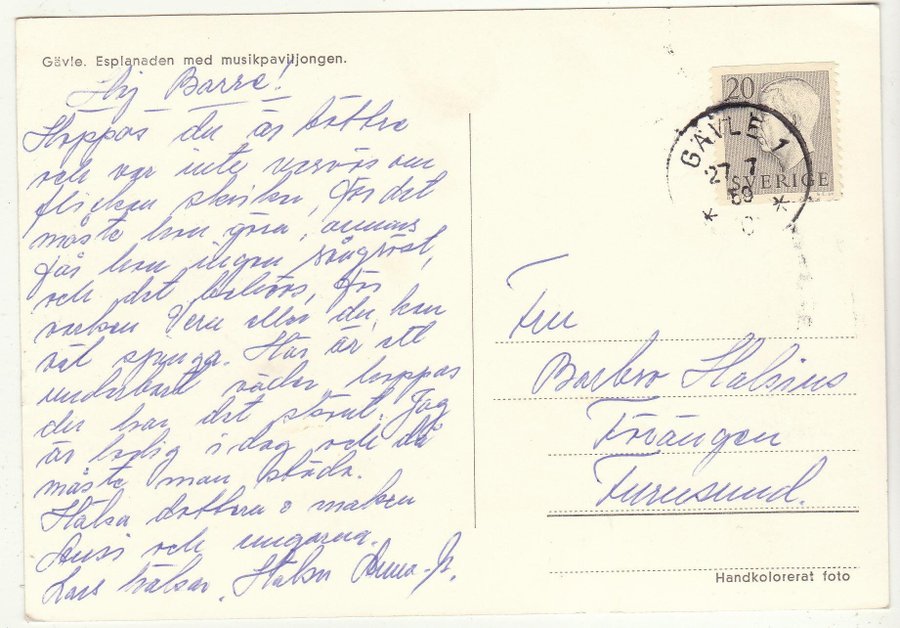 Gävle. Esplanaden med musikpaviljongen.
Hej Barre!
Hoppas du är bättre
och var inte nervös om
flickan skriker, för det
måste hon göra, annars
får hon ingen sångröst,
och det behövs, för
varken Vera eller du kan
väl sjunga. Här är ett
underbart väder, hoppas
der har det störst. Jag
är ledig idag och då
måste man städa.
Hälsa dottern o maken
och ungarna.
Lars hälsar. Hälsn Anna-
20
SVERIGE
GÄVLE 1
27 7
59
Fru
Barbro Halsius
Furusund.
Handkolorerat foto